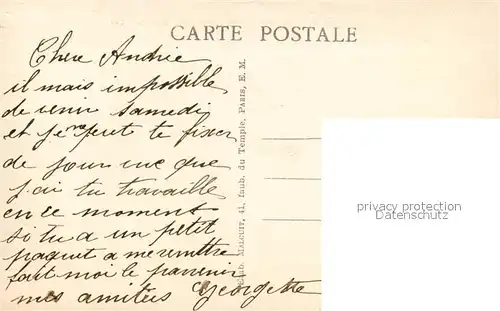 CARTE POSTALE
Chere Andrée
il mais impossible
de venir samedi
et je ne peut te fixer
de jour vue que
j'ai tu travaille
en ce moment
si tu a un petit
paquet a me remettre
fait moi le parvenir
mes amitiés Georgette
MALCUIT, 41, faub. du Temple, PARIS, E. M.
privacy protection
Datenschutz